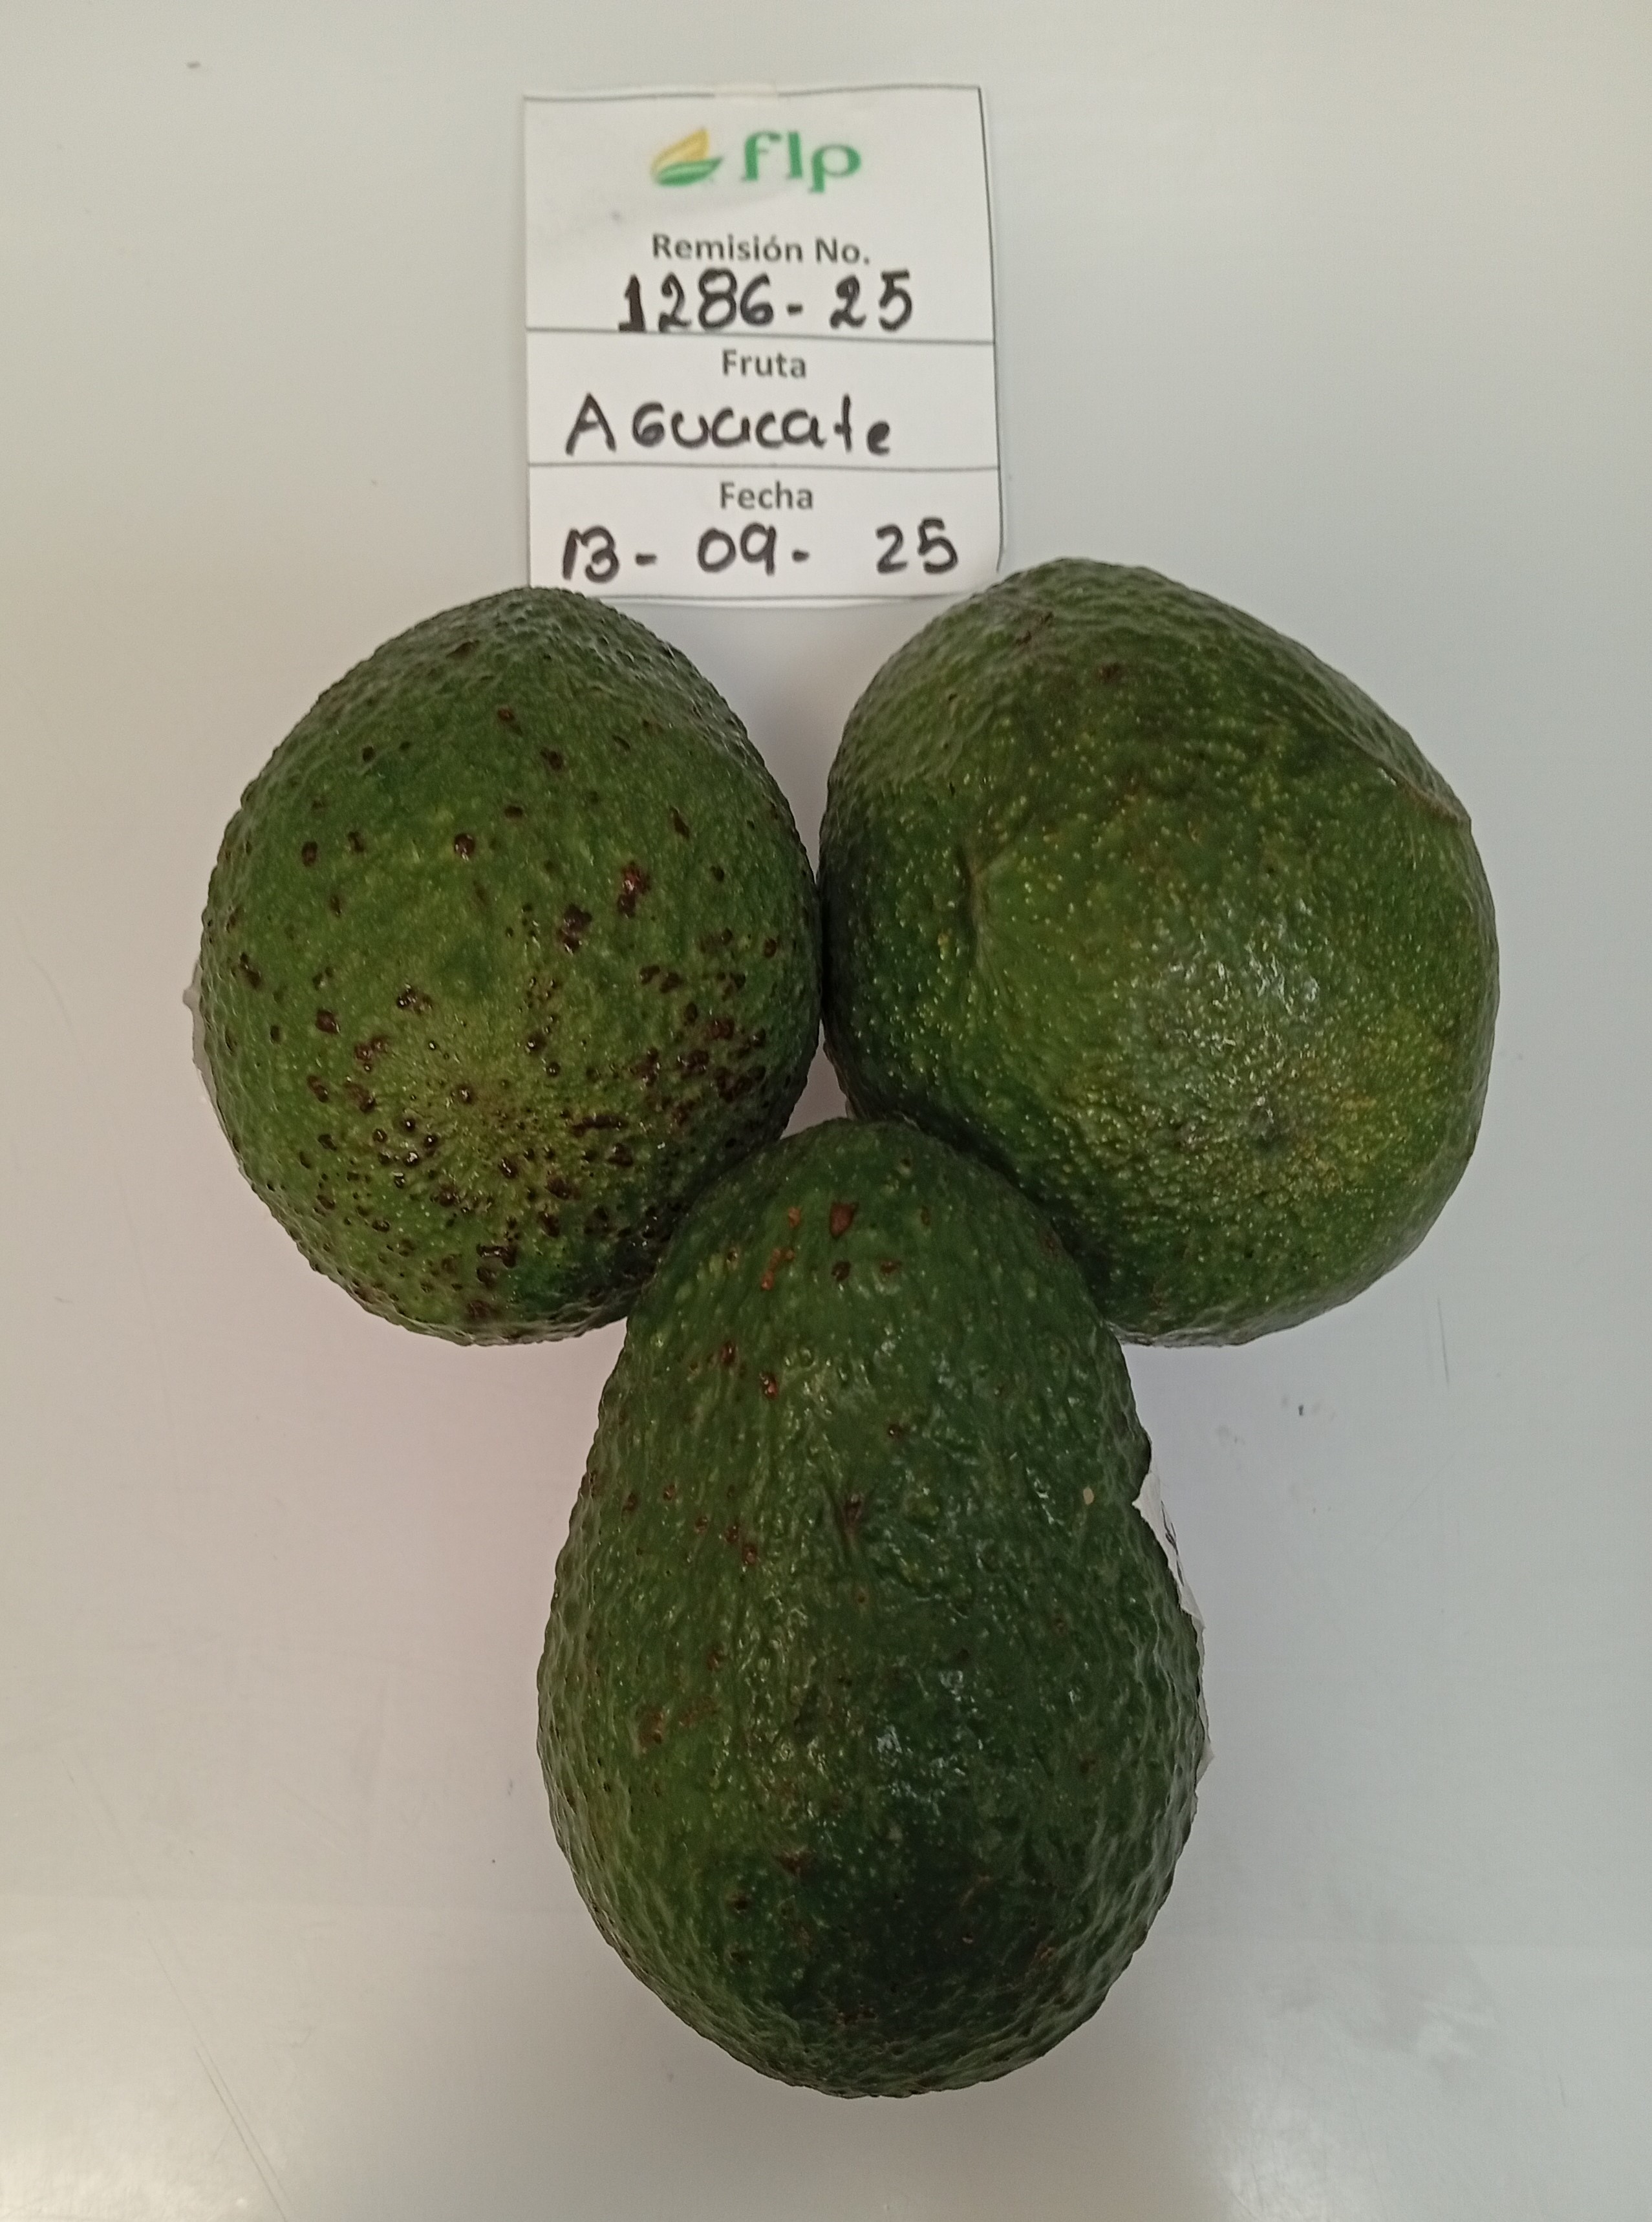 flp
Remisión No.
1286-25
Fruta
Aguacate
Fecha
13-09-25